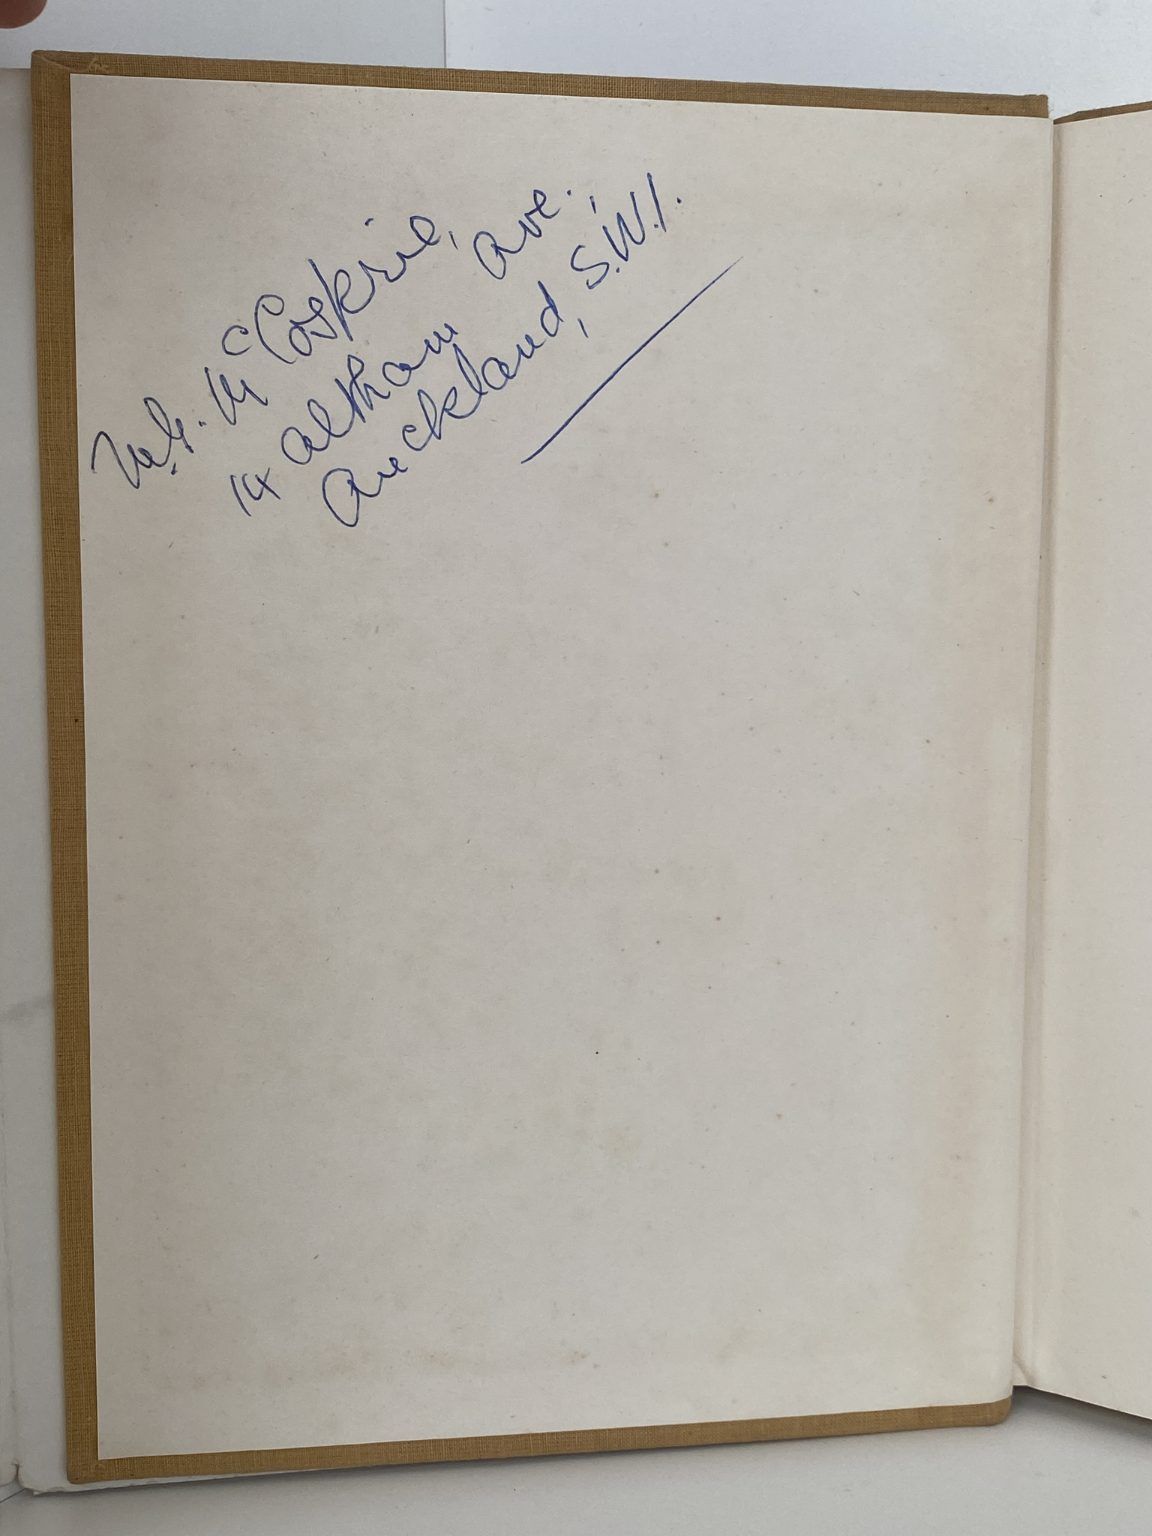 McCoskrie,
14 Altham Ave.,
Auckland, S.W.1.